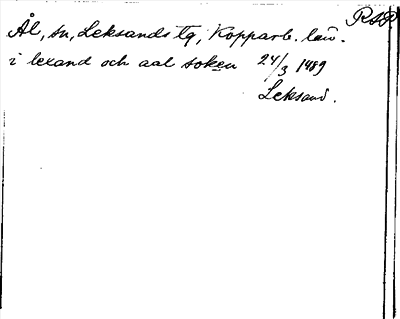 RSP
Ål, sn, Leksands tg, Kopparb. län.
i lexand och aal soken 24/3 1489
Leksand.